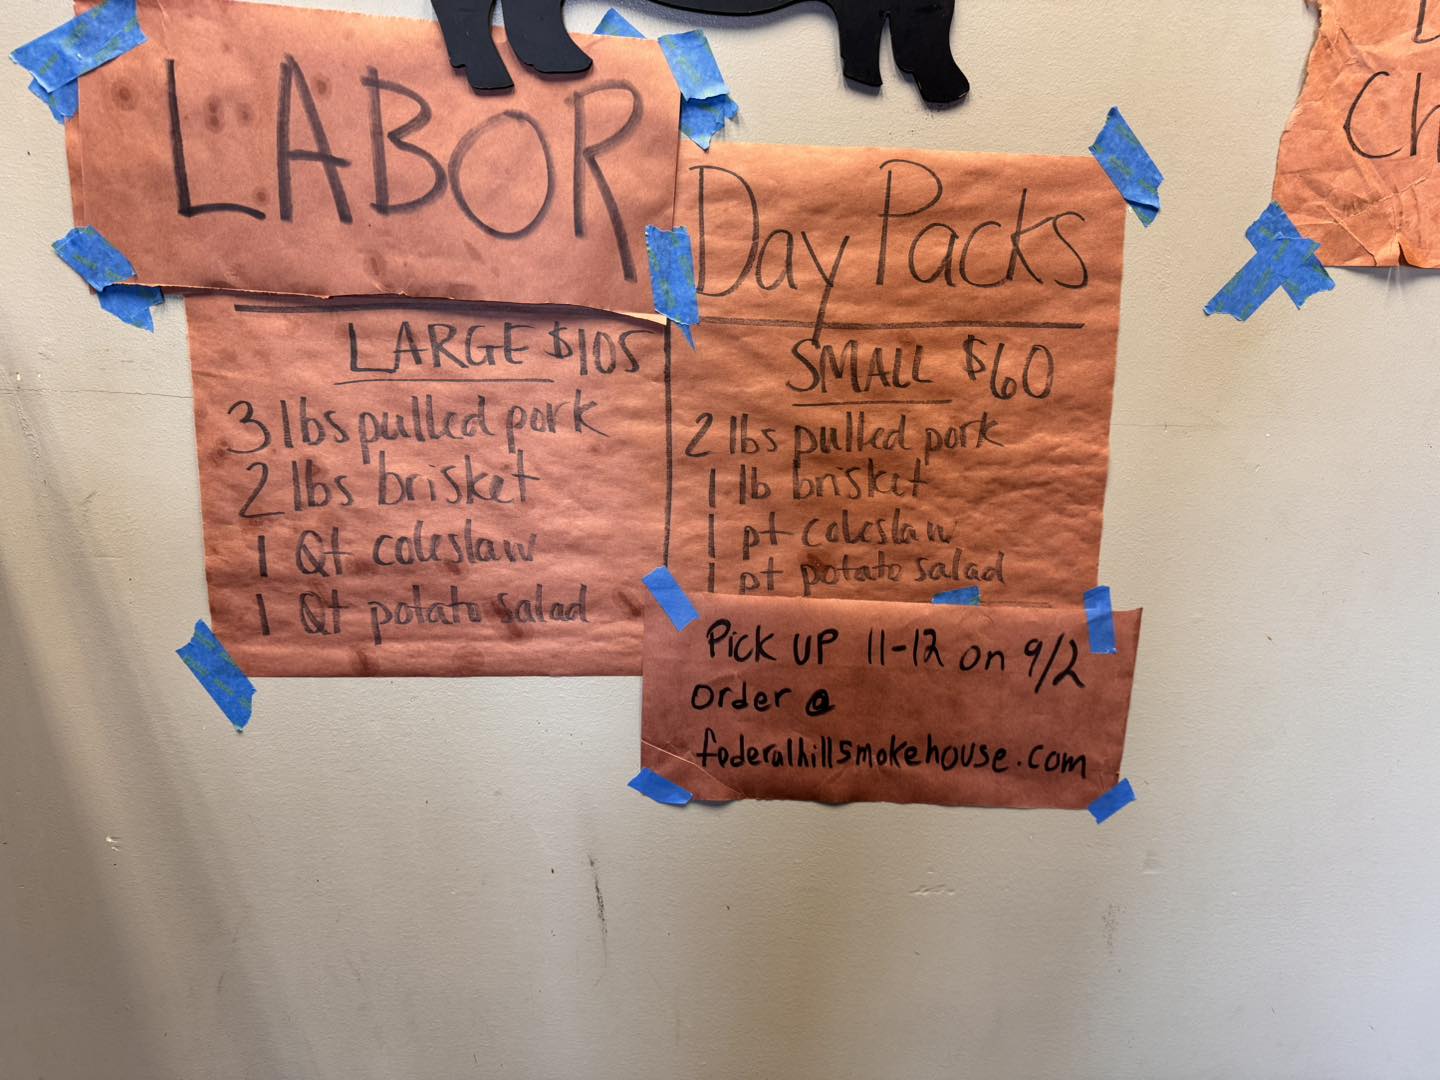 LABOR
Day Packs
LARGE $105
3 lbs pulled pork
2 lbs brisket
1 Qt coleslaw
1 Qt potato salad
SMALL $60
2 lbs pulled pork
1 lb brisket
1 pt coleslaw
1 pt potato salad
Pick UP 11-12 on 9/2
Order @
federalhillsmokehouse.com
Ch